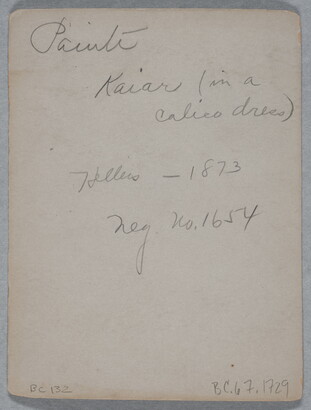 Paiute
Kaiar (in a
calico dress)
Hillers – 1873
Neg. No. 1654
BC 132
BC.67.1729